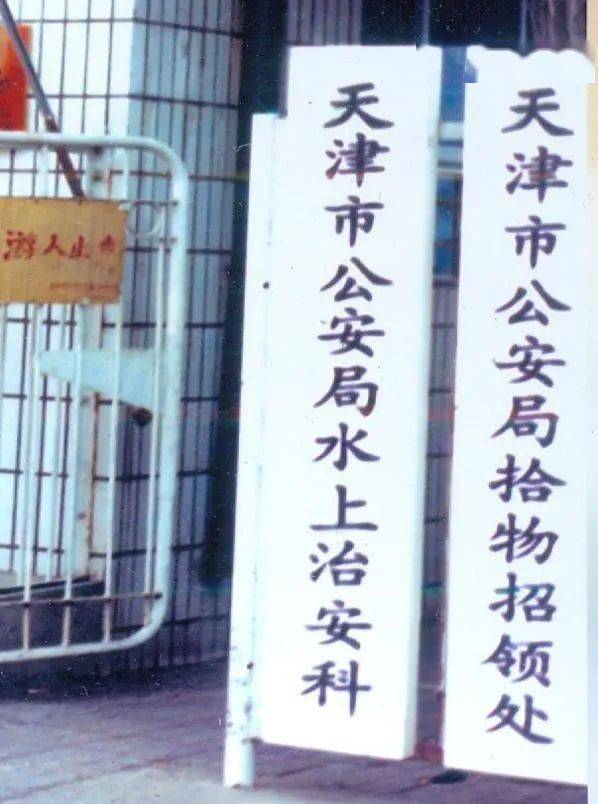 天津市公安局水上治安科
天津市公安局拾物招领处
游人止步